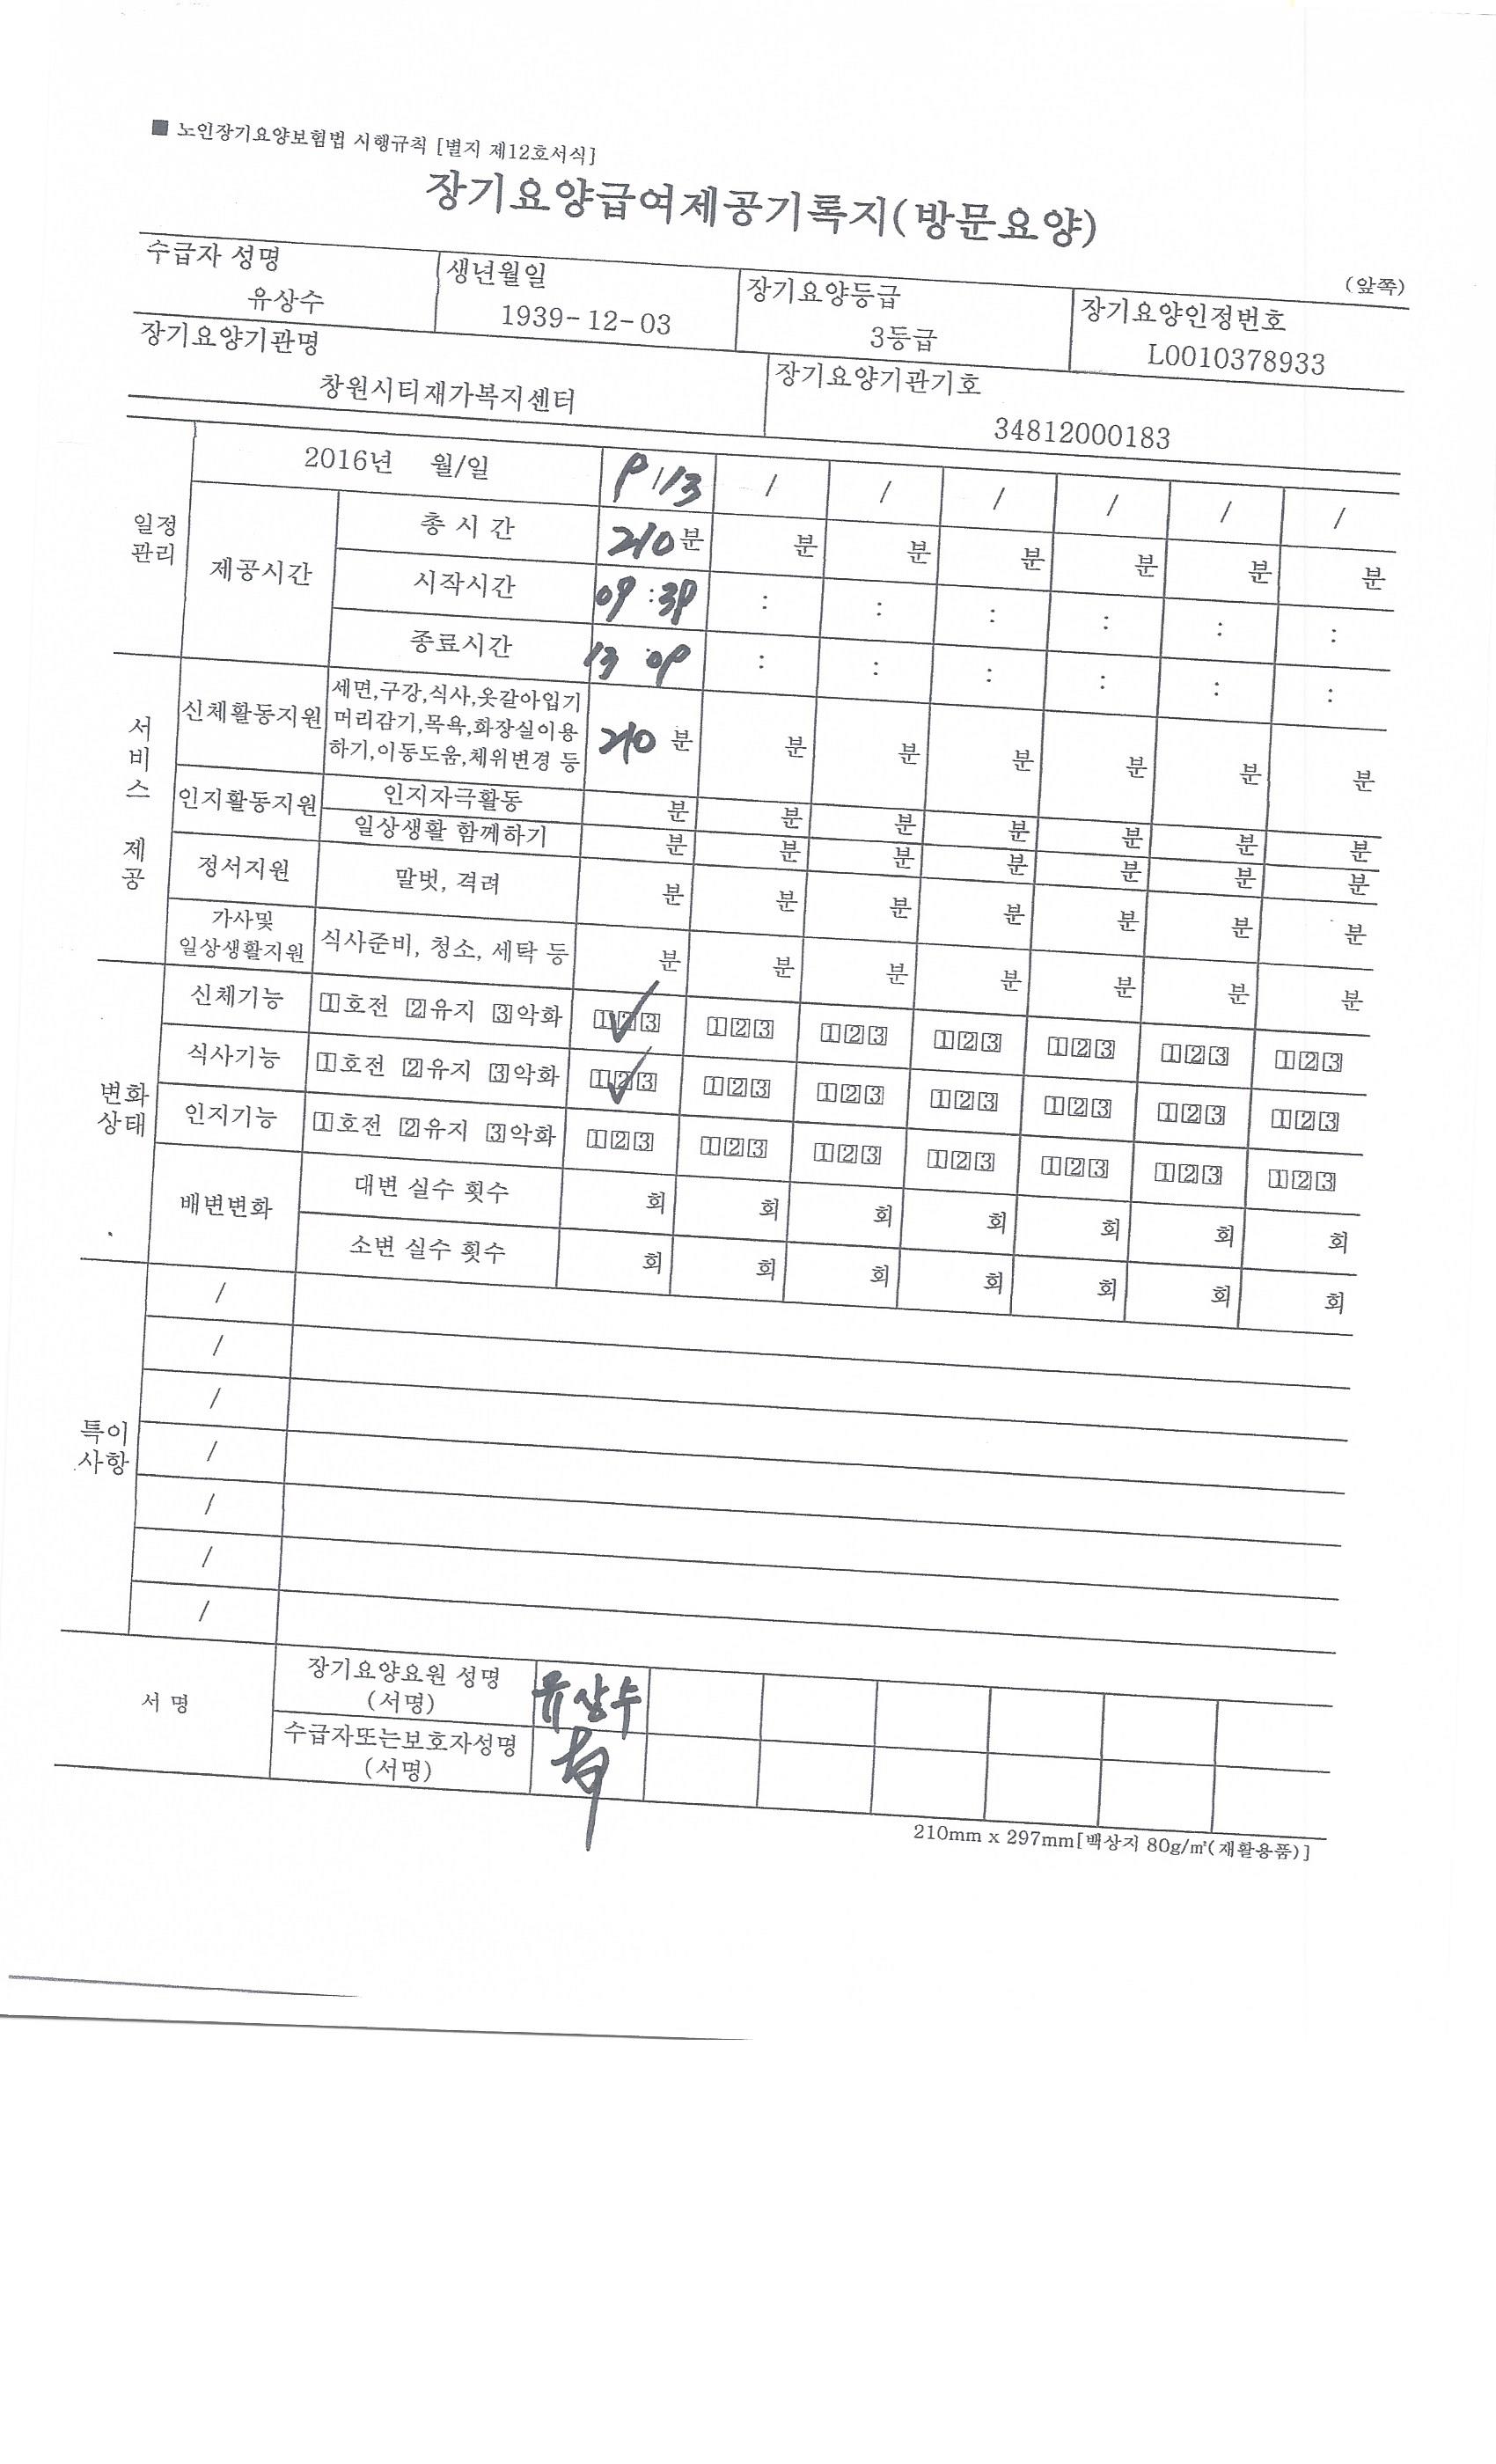 ■ 노인장기요양보험법 시행규칙 [별지 제12호서식]
장기요양급여제공기록지(방문요양)
(앞쪽)
수급자 성명 생년월일 장기요양등급 장기요양인정번호
유상수 1939-12-03 3등급 L0010378933
장기요양기관명 장기요양기관기호
창원시티재가복지센터 34812000183
일정 관리
2016년 월/일 9/13 / / / / / /
제공시간
총 시 간 210분 분 분 분 분 분 분
시작시간 09:39 : : : : : :
종료시간 13:09 : : : : : :
서비스 제공
신체활동지원
세면,구강,식사,옷갈아입기
머리감기,목욕,화장실이용
하기,이동도움,체위변경 등
210 분 분 분 분 분 분 분
인지활동지원
인지자극활동 분 분 분 분 분 분 분
일상생활 함께하기 분 분 분 분 분 분 분
정서지원 말벗, 격려 분 분 분 분 분 분 분
가사및
일상생활지원 식사준비, 청소, 세탁 등 분 분 분 분 분 분 분
변화 상태
신체기능 1호전 2유지 3악화 1 2 3 1 2 3 1 2 3 1 2 3 1 2 3 1 2 3 1 2 3
식사기능 1호전 2유지 3악화 1 2 3 1 2 3 1 2 3 1 2 3 1 2 3 1 2 3 1 2 3
인지기능 1호전 2유지 3악화 1 2 3 1 2 3 1 2 3 1 2 3 1 2 3 1 2 3 1 2 3
배변변화
대변 실수 횟수 회 회 회 회 회 회 회
소변 실수 횟수 회 회 회 회 회 회 회
특이 사항
/
/
/
/
/
/
/
서 명
장기요양요원 성명
(서명)
유상수
수급자또는보호자성명
(서명)
210mm x 297mm[백상지 80g/㎡(재활용품)]